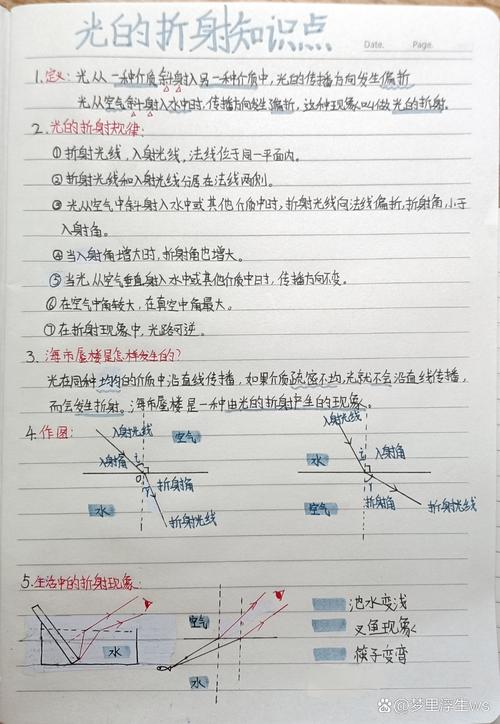 光的折射知识点
Date.
Page.
1.定义: 光从一种介质斜射入另一种介质中,光的传播方向发生偏折
光从空气斜射入水中时,传播方向发生偏折,这种现象叫做光的折射.
2.光的折射规律:
①折射光线,入射光线,法线位于同一平面内。
②折射光线和入射光线分居在法线两侧。
③光从空气中斜射入水中或其他介质中时,折射光线向法线偏折,折射角小于
入射角。
④当入射角增大时,折射角也增大。
⑤当光从空气垂直射入水中或其他介质中时,传播方向不变。
⑥在空气中角较大,在真空中角最大。
⑦在折射现象中,光路可逆。
3.海市蜃楼是怎样发生的?
光在同种均匀的介质中沿直线传播,如果介质疏密不均,光就不会沿直线传播,
而会发生折射。海市蜃楼是一种由光的折射产生的现象。
4.作图:
入射光线
空气
入射角
i
O
r
折射角
水
折射光线
入射光线
水
i
入射角
r
空气
折射角
折射光线
5.生活中的折射现象:
水
空气
水
池水变浅
叉鱼现象
筷子变弯
梦里浮生ws